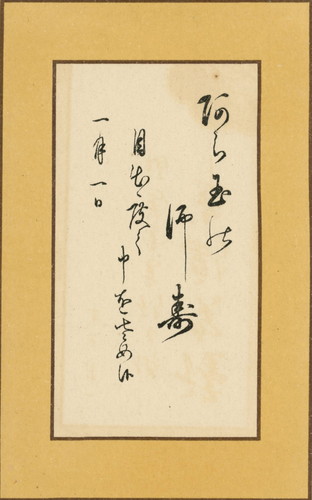 阿ら玉能
御壽
目出度く申をさめ候
一月一日